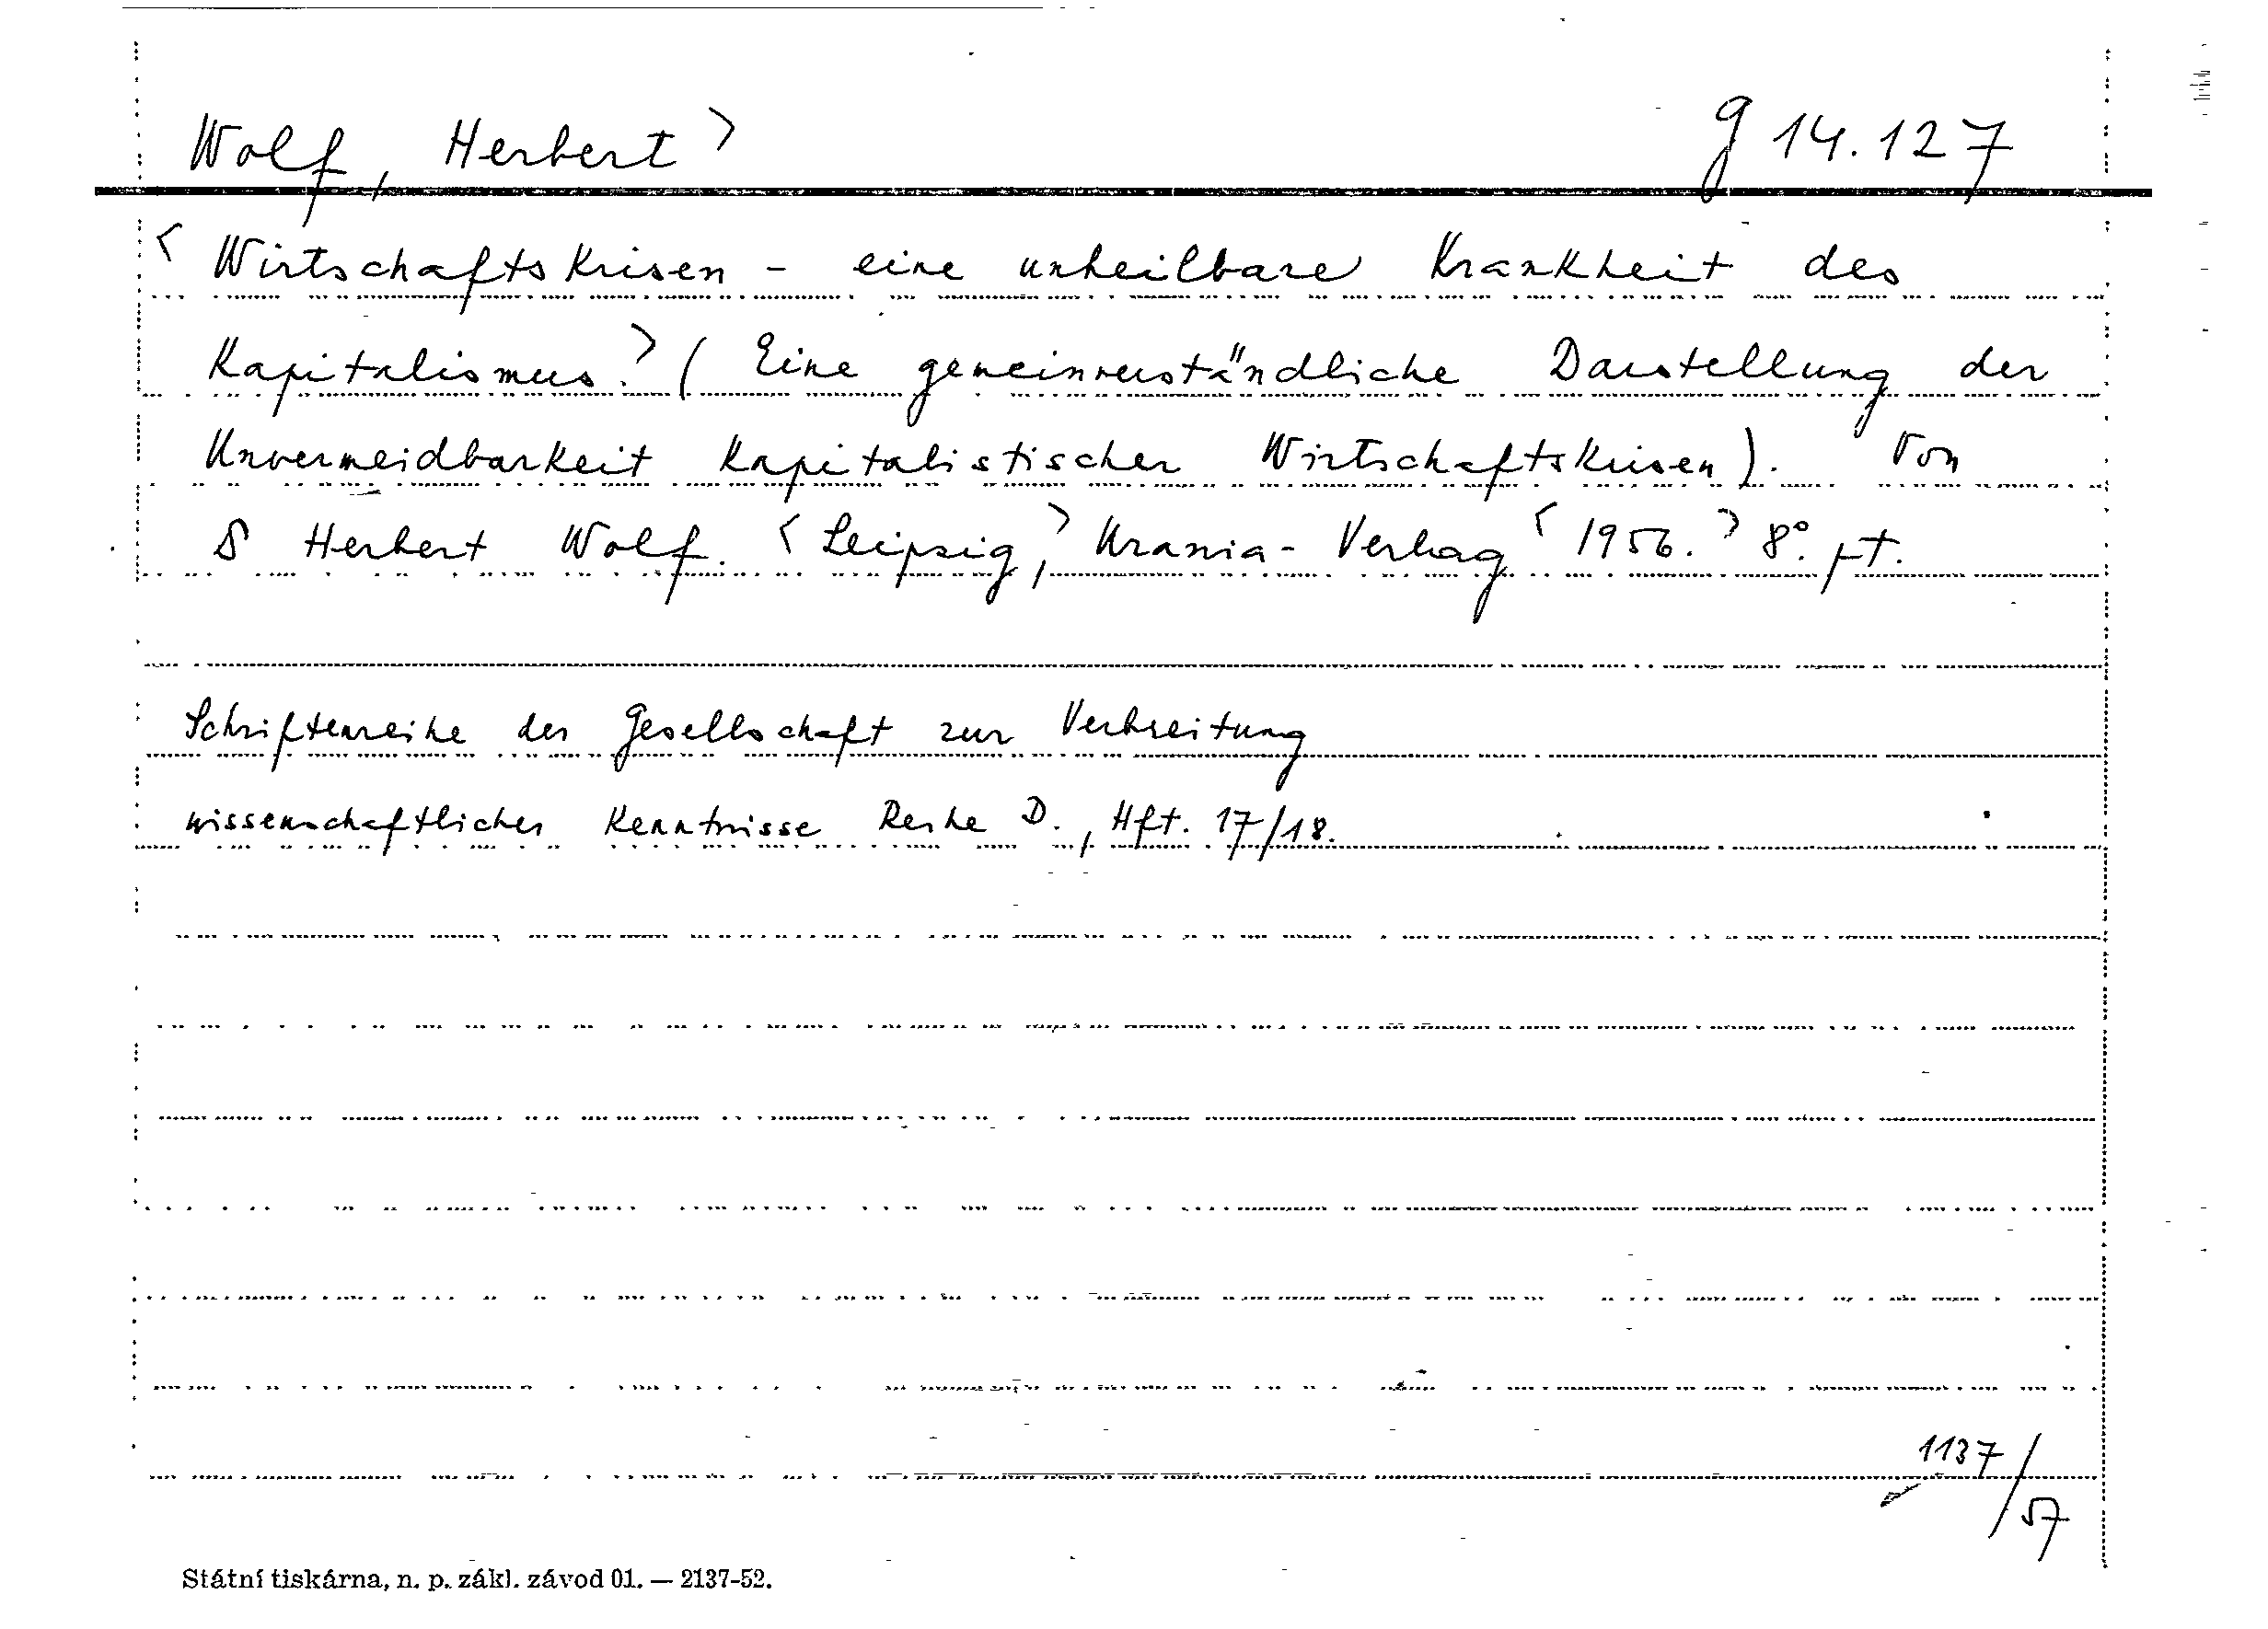 Wolf, Herbert> g 14.127
< Wirtschaftskrisen - eine unheilbare Krankheit des
Kapitalismus.> (Eine gemeinverständliche Darstellung der
Unvermeidbarkeit kapitalistischer Wirtschaftskrisen). Von
S Herbert Wolf. <Leipzig,> Urania-Verlag <1956.> 8°. pt.
Schriftenreihe der Gesellschaft zur Verbreitung
wissenschaftlicher Kenntnisse Reihe D., Hft. 17/18.
1137/57
Státní tiskárna, n. p. zákl. závod 01. — 2137-52.